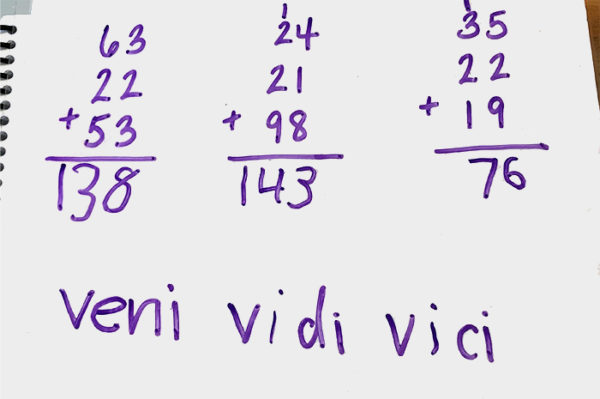 1 1
63 24 35
22 21 22
+53 + 98 + 19
138 143 76
veni vidi vici